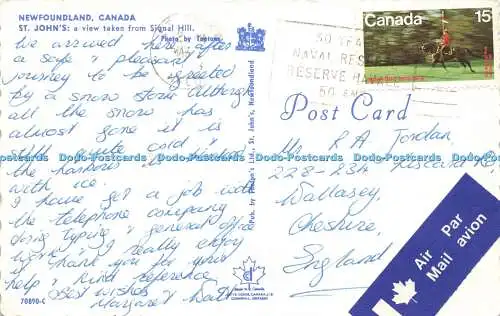 NEWFOUNDLAND, CANADA
ST. JOHN'S: a view taken from Signal Hill.
Photo by Tooton
We arrived here after
a safe & pleasant
journey to be greeted
by a snow storm although
all the snow has
almost gone it is
still quite cold &
the harbour is
with ice.
I have got a job with
the telephone company
doing typing & general office
work & I really enjoy
it thank you for your
help & kind reference
Best wishes
Margaret
70890-C
St. John's, Newfoundland
50 YEA
NAVAL RES
RESERVE
50 AN
Canada 15
Post Card
Mr R A Jordan
228-234 Rd
Wallasey,
Cheshire,
England
Air Par
Mail avion
Dodo-Postcards Dodo-Postcards Dodo-Postcards Dodo-Postcards Dodo-Postcards Dodo-Postcards